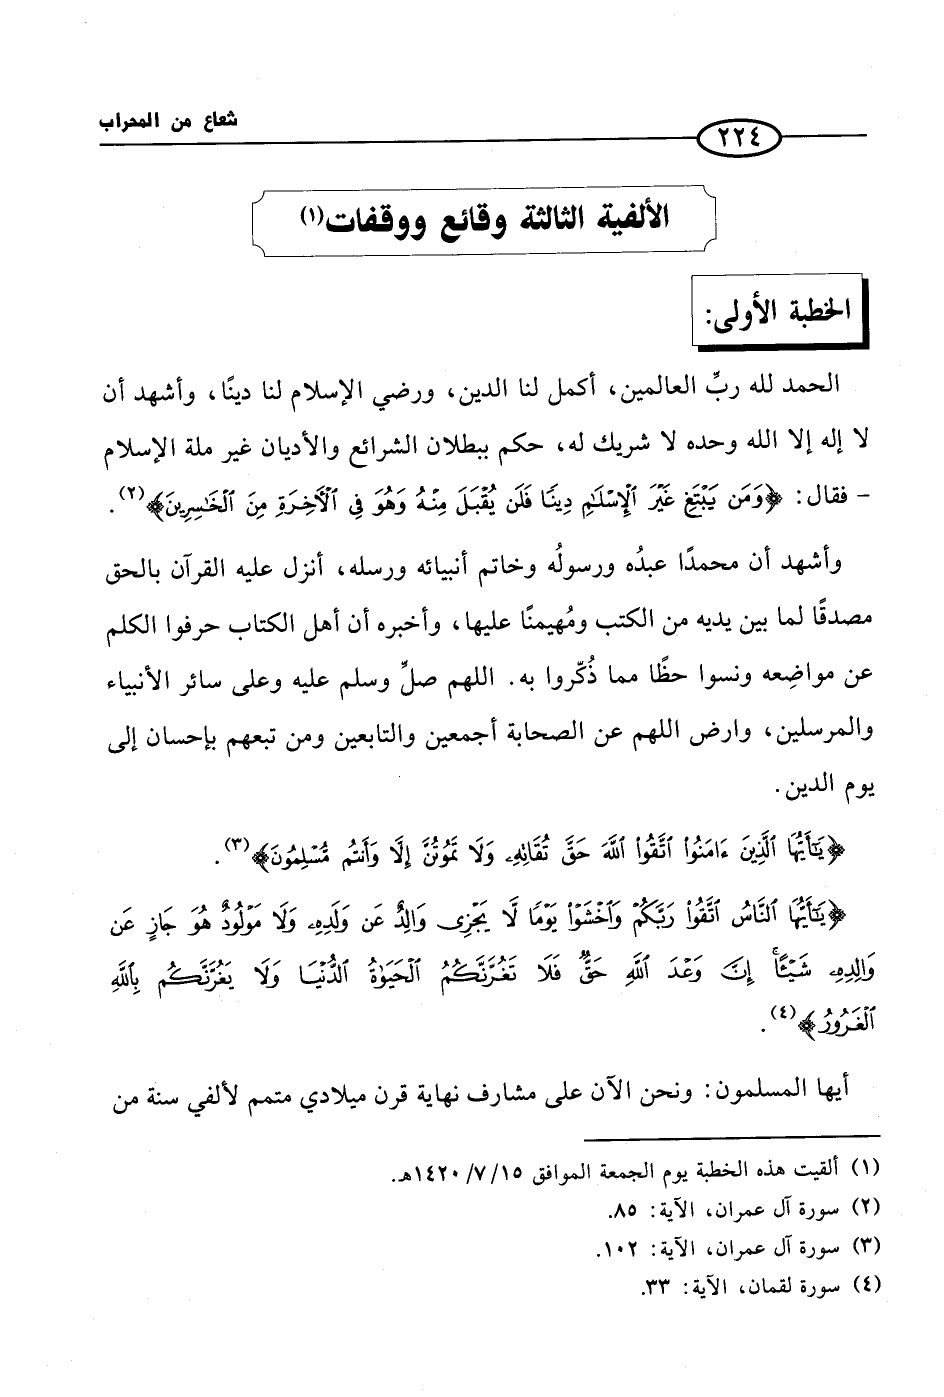 شعاع من المحراب
٢٢٤
الألفية الثالثة وقائع ووقفات(١)
الخطبة الأولى:
الحمد لله ربِّ العالمين، أكمل لنا الدين، ورضي الإسلام لنا دينًا، وأشهد أن
لا إله إلا الله وحده لا شريك له، حكم ببطلان الشرائع والأديان غير ملة الإسلام
- فقال: ﴿وَمَن يَبْتَغِ غَيْرَ ٱلْإِسْلَٰمِ دِينًا فَلَن يُقْبَلَ مِنْهُ وَهُوَ فِى ٱلْأَخِرَةِ مِنَ ٱلْخَٰسِرِينَ﴾(٢).
وأشهد أن محمدًا عبدُه ورسولُه وخاتم أنبيائه ورسله، أنزل عليه القرآن بالحق
مصدقًا لما بين يديه من الكتب ومُهيمنًا عليها، وأخبره أن أهل الكتاب حرفوا الكلم
عن مواضِعه ونسوا حظًا مما ذُكّروا به. اللهم صلِّ وسلم عليه وعلى سائر الأنبياء
والمرسلين، وارض اللهم عن الصحابة أجمعين والتابعين ومن تبعهم بإحسان إلى
يوم الدين.
﴿يَٰٓأَيُّهَا ٱلَّذِينَ ءَامَنُوا۟ ٱتَّقُوا۟ ٱللَّهَ حَقَّ تُقَاتِهِۦ وَلَا تَمُوتُنَّ إِلَّا وَأَنتُم مُّسْلِمُونَ﴾(٣).
﴿يَٰٓأَيُّهَا ٱلنَّاسُ ٱتَّقُوا۟ رَبَّكُمْ وَٱخْشَوْا۟ يَوْمًا لَّا يَجْزِى وَالِدٌ عَن وَلَدِهِۦ وَلَا مَوْلُودٌ هُوَ جَازٍ عَن
وَالِدِهِۦ شَيْـًٔا ۚ إِنَّ وَعْدَ ٱللَّهِ حَقٌّ ۖ فَلَا تَغُرَّنَّكُمُ ٱلْحَيَوٰةُ ٱلدُّنْيَا وَلَا يَغُرَّنَّكُم بِٱللَّهِ
ٱلْغَرُورُ﴾(٤).
أيها المسلمون: ونحن الآن على مشارف نهاية قرن ميلادي متمم لألفي سنة من
(١) ألقيت هذه الخطبة يوم الجمعة الموافق ١٤٢٠/٧/١٥هـ.
(٢) سورة آل عمران، الآية: ٨٥.
(٣) سورة آل عمران، الآية: ١٠٢.
(٤) سورة لقمان، الآية: ٣٣.